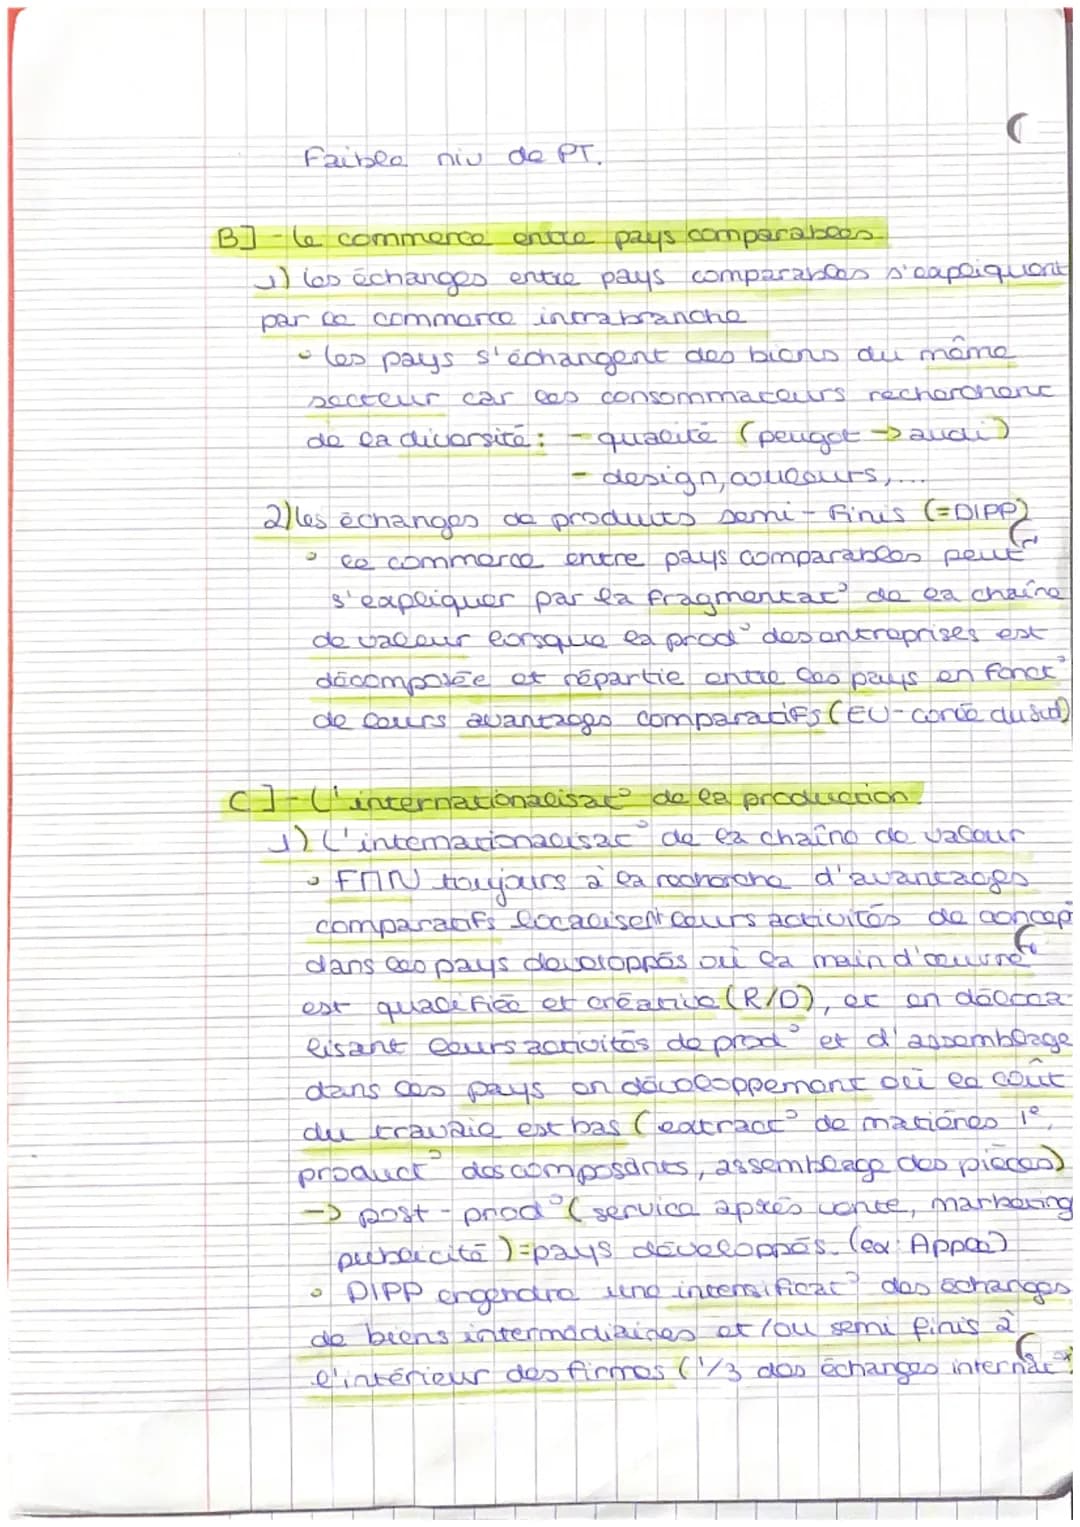 Faible niv de PT.
B] - le commerce entre pays comparables
1) les échanges entre pays comparables s'expliquent
par le commerce intrabranche
• les pays s'échangent des biens du même
secteur car les consommateurs recherchent
de la diversité : - qualité (peugot → audi)
- design, couleurs, ...
2) les échanges de produits semi-finis (=DIPP)
• le commerce entre pays comparables peut
s'expliquer par la fragmentat° de la chaîne
de valeur lorsque la prod° des entreprises est
décomposée et répartie entre les pays en fonct°
de leurs avantages comparatifs (EU-corée du sud)
C] - L'internationalisat° de la production.
1) L'internationalisat° de la chaîne de valeur
• FMN toujours à la recherche d'avantages
comparatifs localisent leurs activités de concept°
dans les pays developpés où la main d'œuvre
est qualifiée et créative (R/D), et en déloca-
lisant leurs activités de prod° et d'assemblage
dans les pays en développement où le coût
du travail est bas (extract° de matières 1e,
product° des composants, assemblage des pièces)
→ post-prod° (service après vente, marketing
publicité) = pays développés. (ex: Apple)
• DIPP engendre une intensificat° des échanges
de biens intermédiaires et/ou semi finis à
l'intérieur des firmes (1/3 des échanges internat°